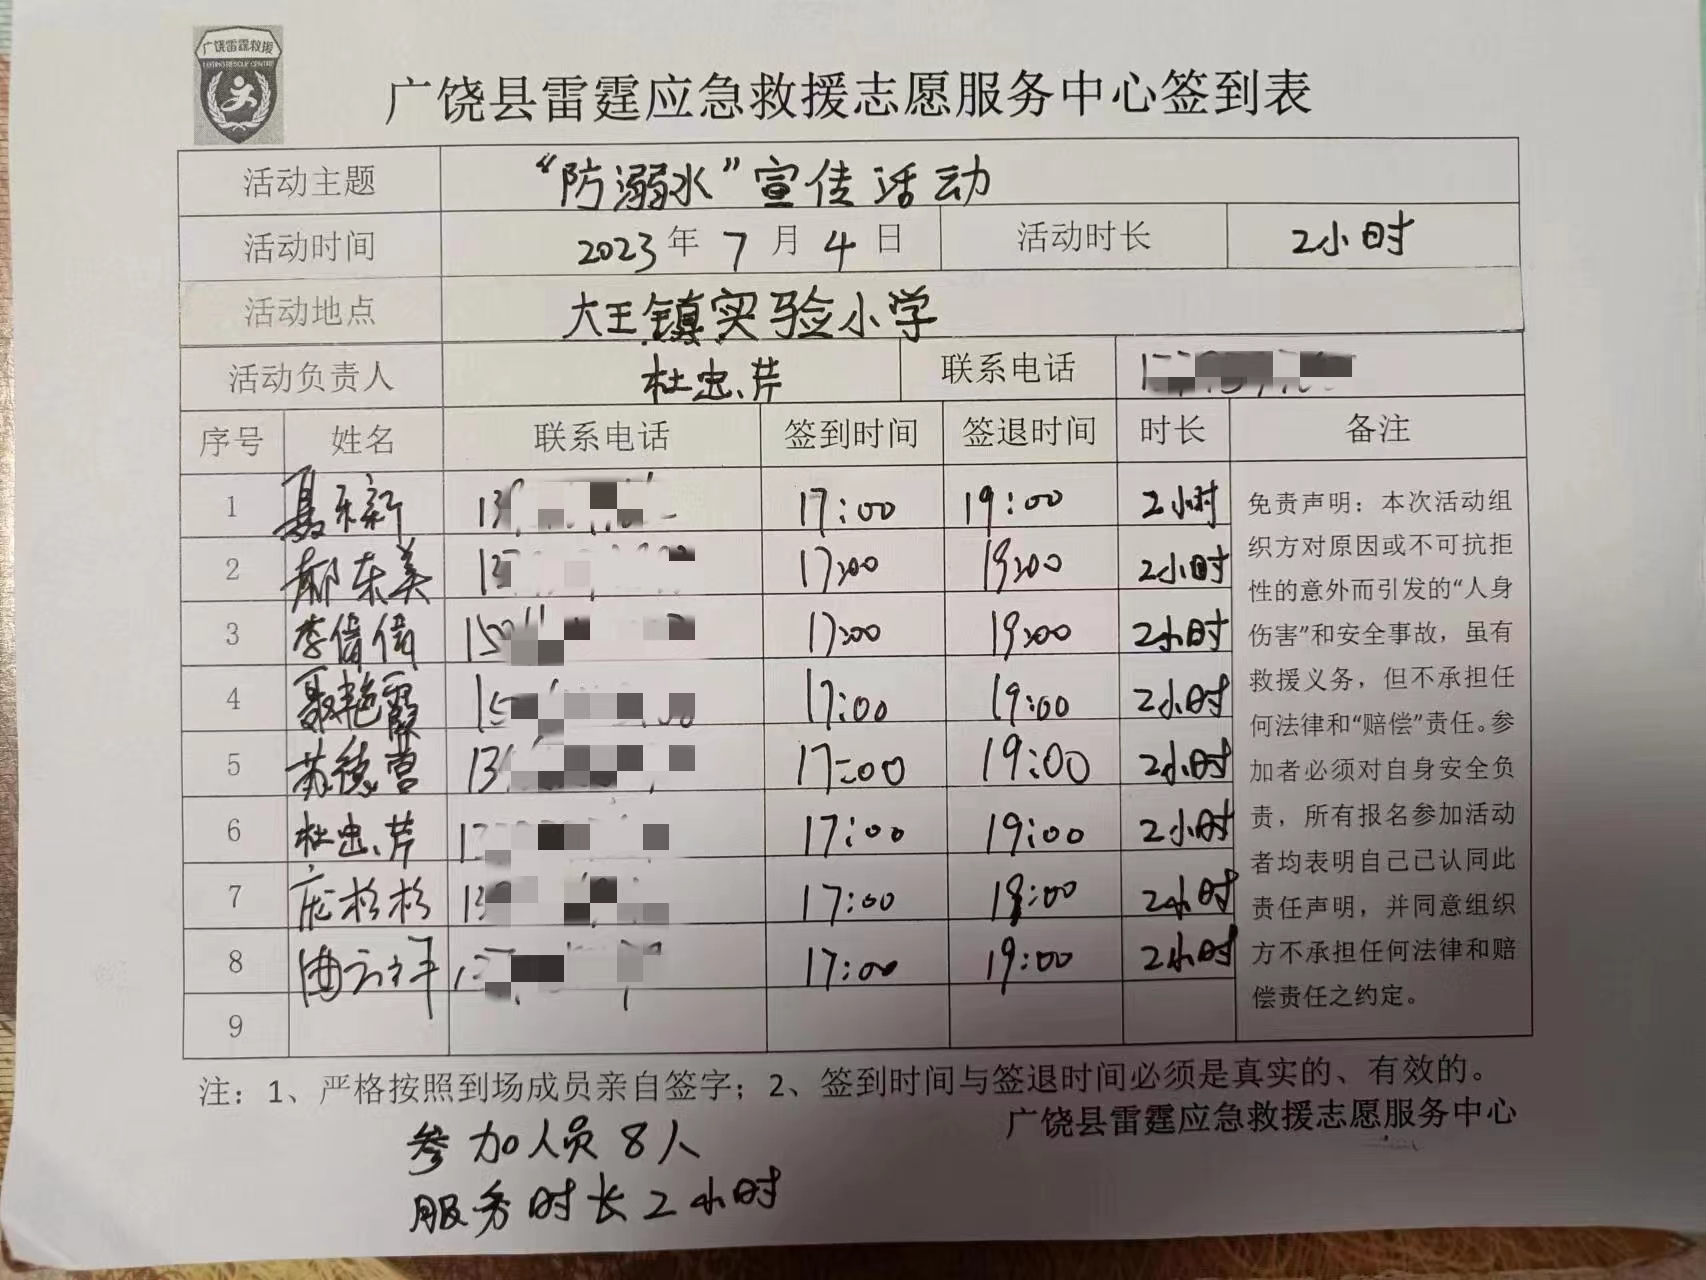 广饶雷霆救援
广饶县雷霆应急救援志愿服务中心签到表
活动主题 “防溺水”宣传活动
活动时间 2023年7月4日 活动时长 2小时
活动地点 大王镇实验小学
活动负责人 杜忠芹 联系电话
序号 姓名 联系电话 签到时间 签退时间 时长 备注
1 聂新 13 17:00 19:00 2小时
2 郝东美 17:00 19:00 2小时
3 李倩倩 150 17:00 19:00 2小时
4 聂艳霞 15 17:00 19:00 2小时
5 苏德营 13 17:00 19:00 2小时
6 杜忠芹 17:00 19:00 2小时
7 庞杉杉 17:00 19:00 2小时
8 曲云祥 17:00 19:00 2小时
9
免责声明：本次活动组
织方对原因或不可抗拒
性的意外而引发的“人身
伤害”和安全事故，虽有
救援义务，但不承担任
何法律和“赔偿”责任。参
加者必须对自身安全负
责，所有报名参加活动
者均表明自己已认同此
责任声明，并同意组织
方不承担任何法律和赔
偿责任之约定。
注：1、严格按照到场成员亲自签字；2、签到时间与签退时间必须是真实的、有效的。
广饶县雷霆应急救援志愿服务中心
参加人员8人
服务时长2小时